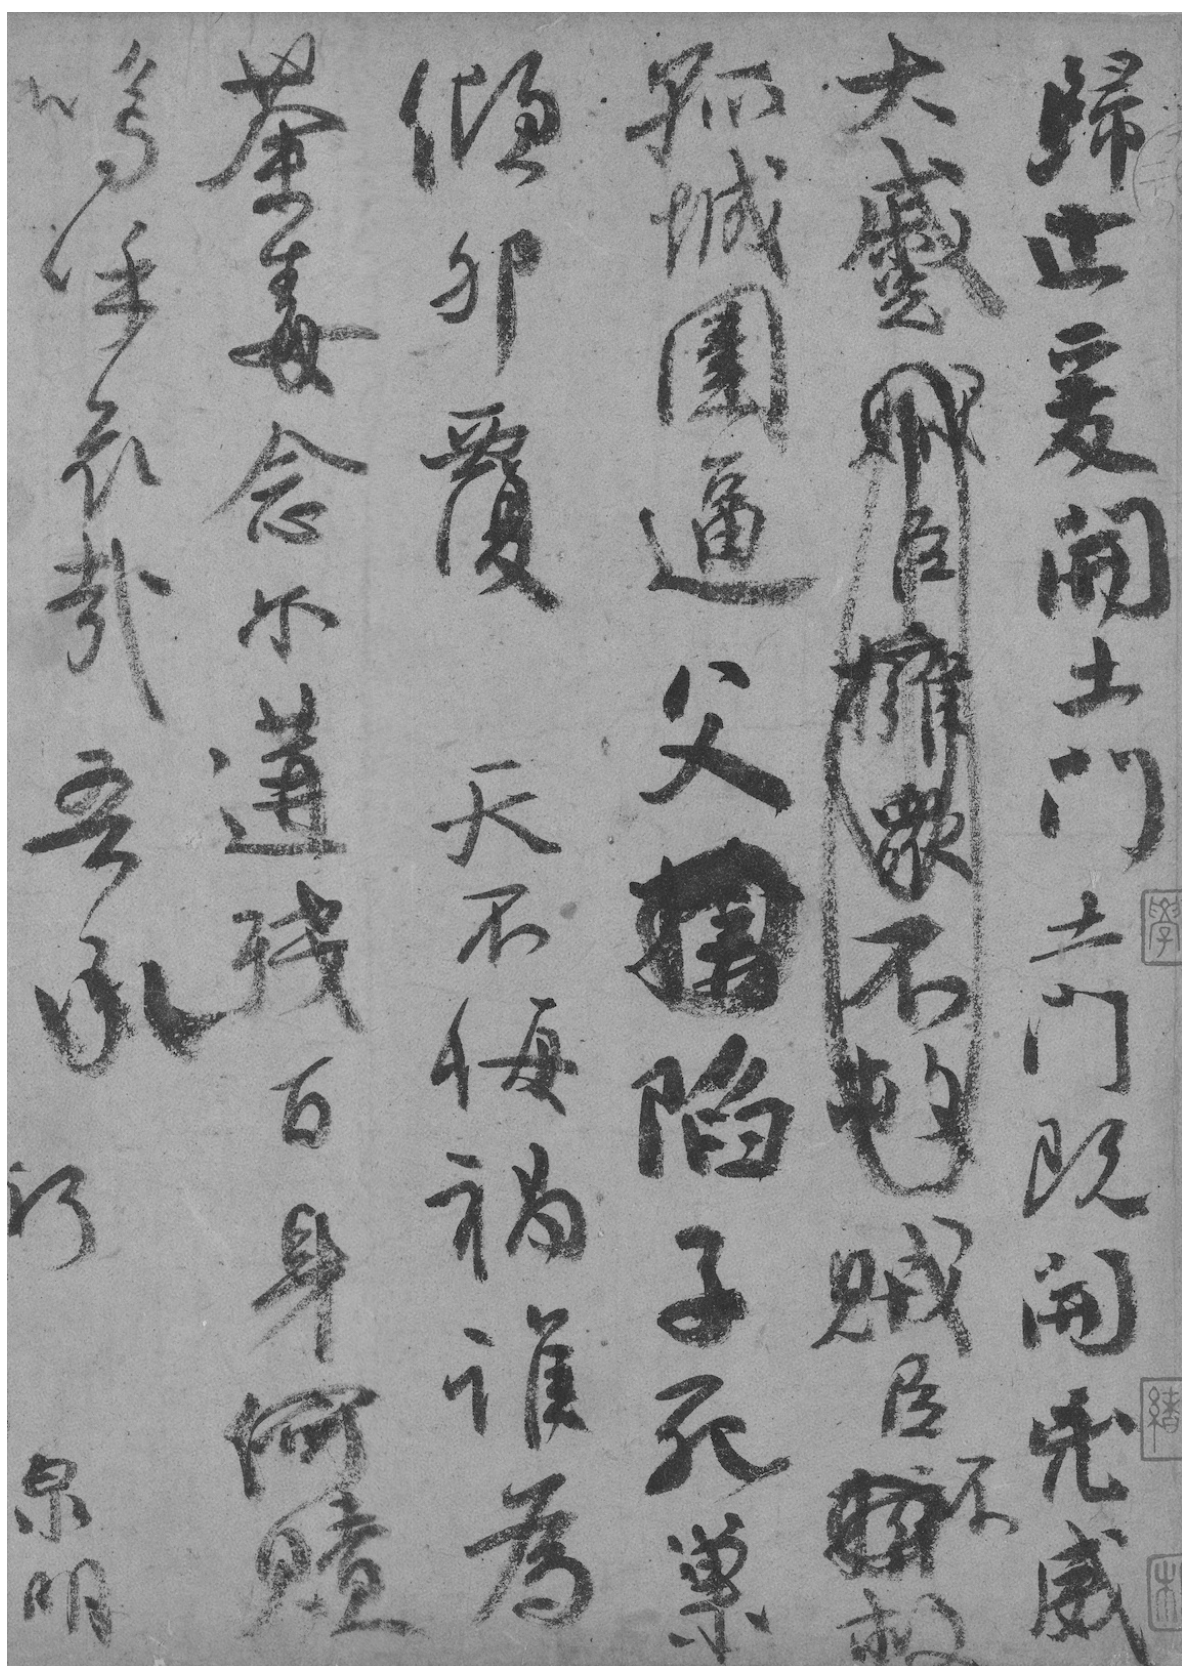 歸止爰開土門土門既開凶威
大蹙賊臣擁衆不救賊臣不救
孤城圍逼父陷子死巢
傾卵覆天不悔禍誰為
荼毒念尔遘殘百身何贖
嗚呼哀哉吾承
泉明